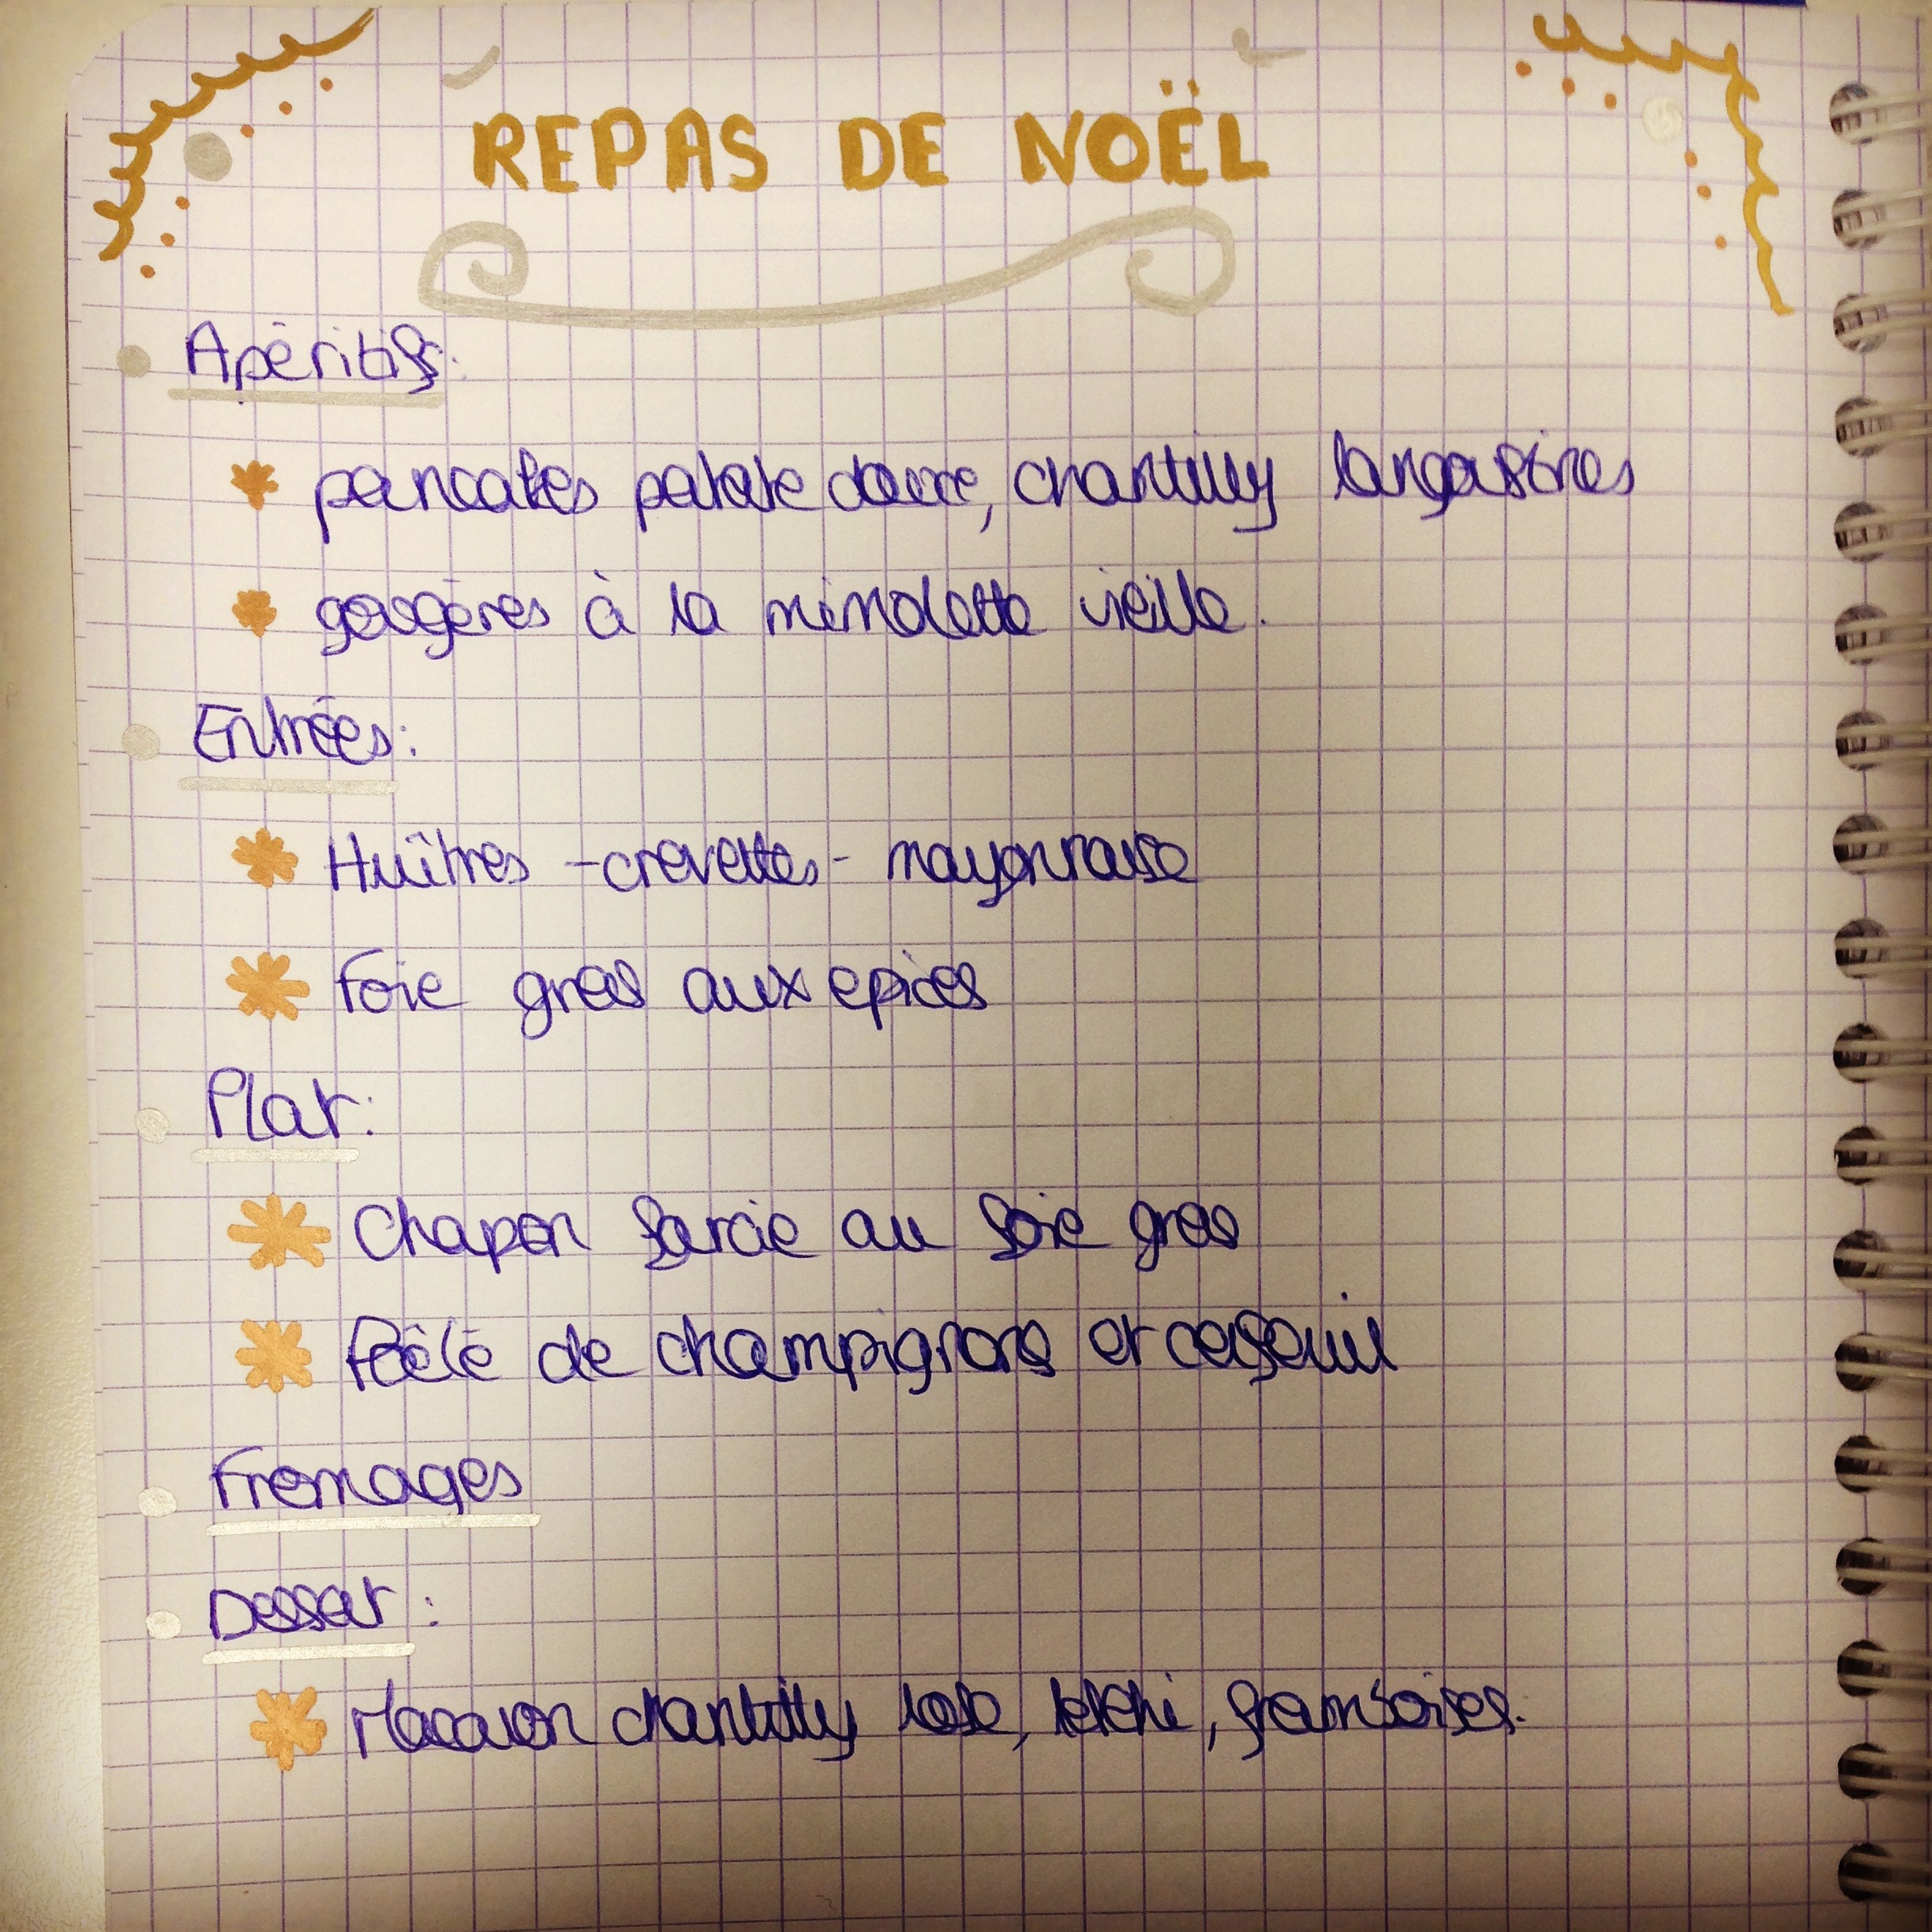 REPAS DE NOËL
Apéritifs:
pancakes patate douce, chantilly langoustines
gougères à la mimolette vieille.
Entrées:
Huîtres - crevettes - mayonnaise
Foie gras aux epices
Plat:
Chapon farcie au foie gras
Poêlé de champignons et cerfeuil
Fromages
Dessert:
Macaron chantilly rose, letchi, framboises.